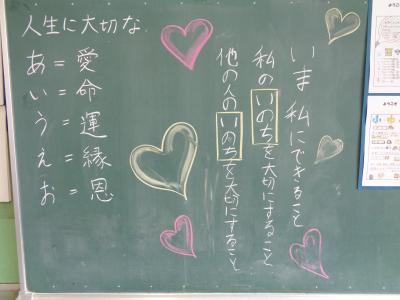 人生に大切な
あ=愛
い=命
う=運
え=縁
お=恩
いま 私にできること
私のいのちを大切にすること
他の人のいのちを大切にすること
ようこそ